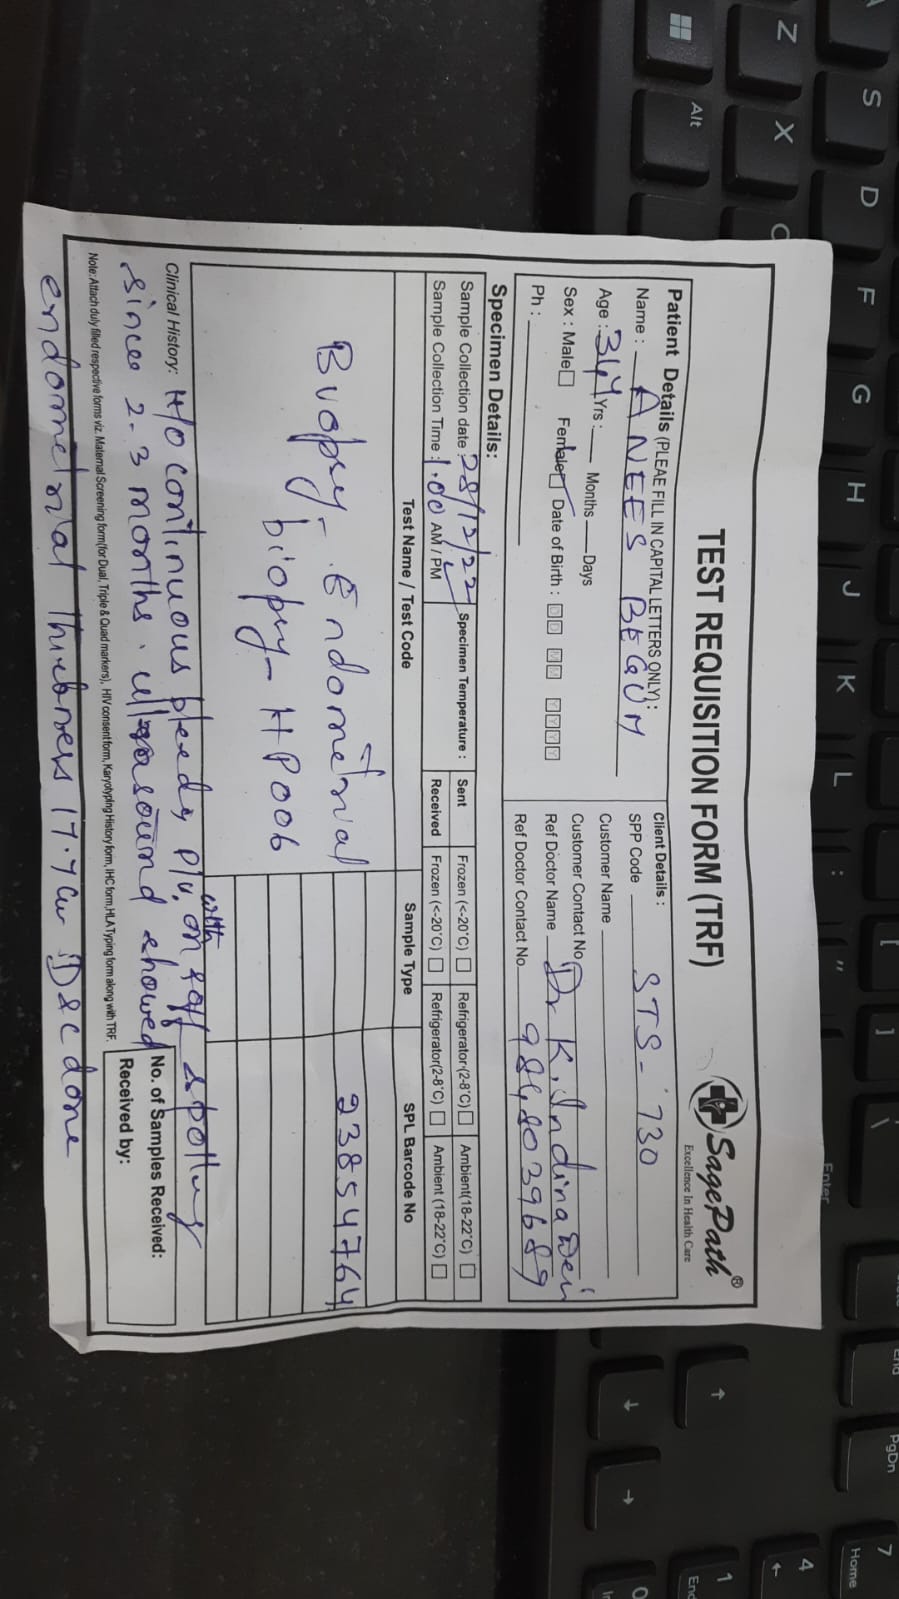 TEST REQUISITION FORM (TRF)
SagePath®
Excellence In Health Care
Patient Details (PLEAE FILL IN CAPITAL LETTERS ONLY):
Name : ANEES BEGUM
Age : 34 Yrs : Months Days
Sex : Male Female Date of Birth : DD MM YYYY
Ph :
Client Details :
SPP Code STS- 730
Customer Name
Customer Contact No
Ref Doctor Name Dr K. Indira Devi
Ref Doctor Contact No 9848039689
Specimen Details:
Sample Collection date : 28/12/22
Sample Collection Time : 1.00 AM / PM
Specimen Temperature :
Sent Frozen (<-20°C) Refrigerator(2-8°C) Ambient(18-22°C)
Received Frozen (<-20°C) Refrigerator(2-8°C) Ambient (18-22°C)
Test Name / Test Code Sample Type SPL Barcode No
Biopsy - Endometrial 23854764
biopsy - HP006
Clinical History: H/O continuous bleeding P/V, on & off spotting
with
since 2-3 months. ultrasound showed
No. of Samples Received:
Received by:
Note: Attach duly filled respective forms viz. Maternal Screening form(for Dual, Triple & Quad markers), HIV consent form, Karyotyping History form, IHC form, HLA Typing form along with TRF.
endometrial thickness 17.7 D&C done
Alt
Z
X
C
A
S
D
F
G
H
J
K
L
: ;
"
[
]
\
Enter
End
PgDn
7
Home
4
1
0